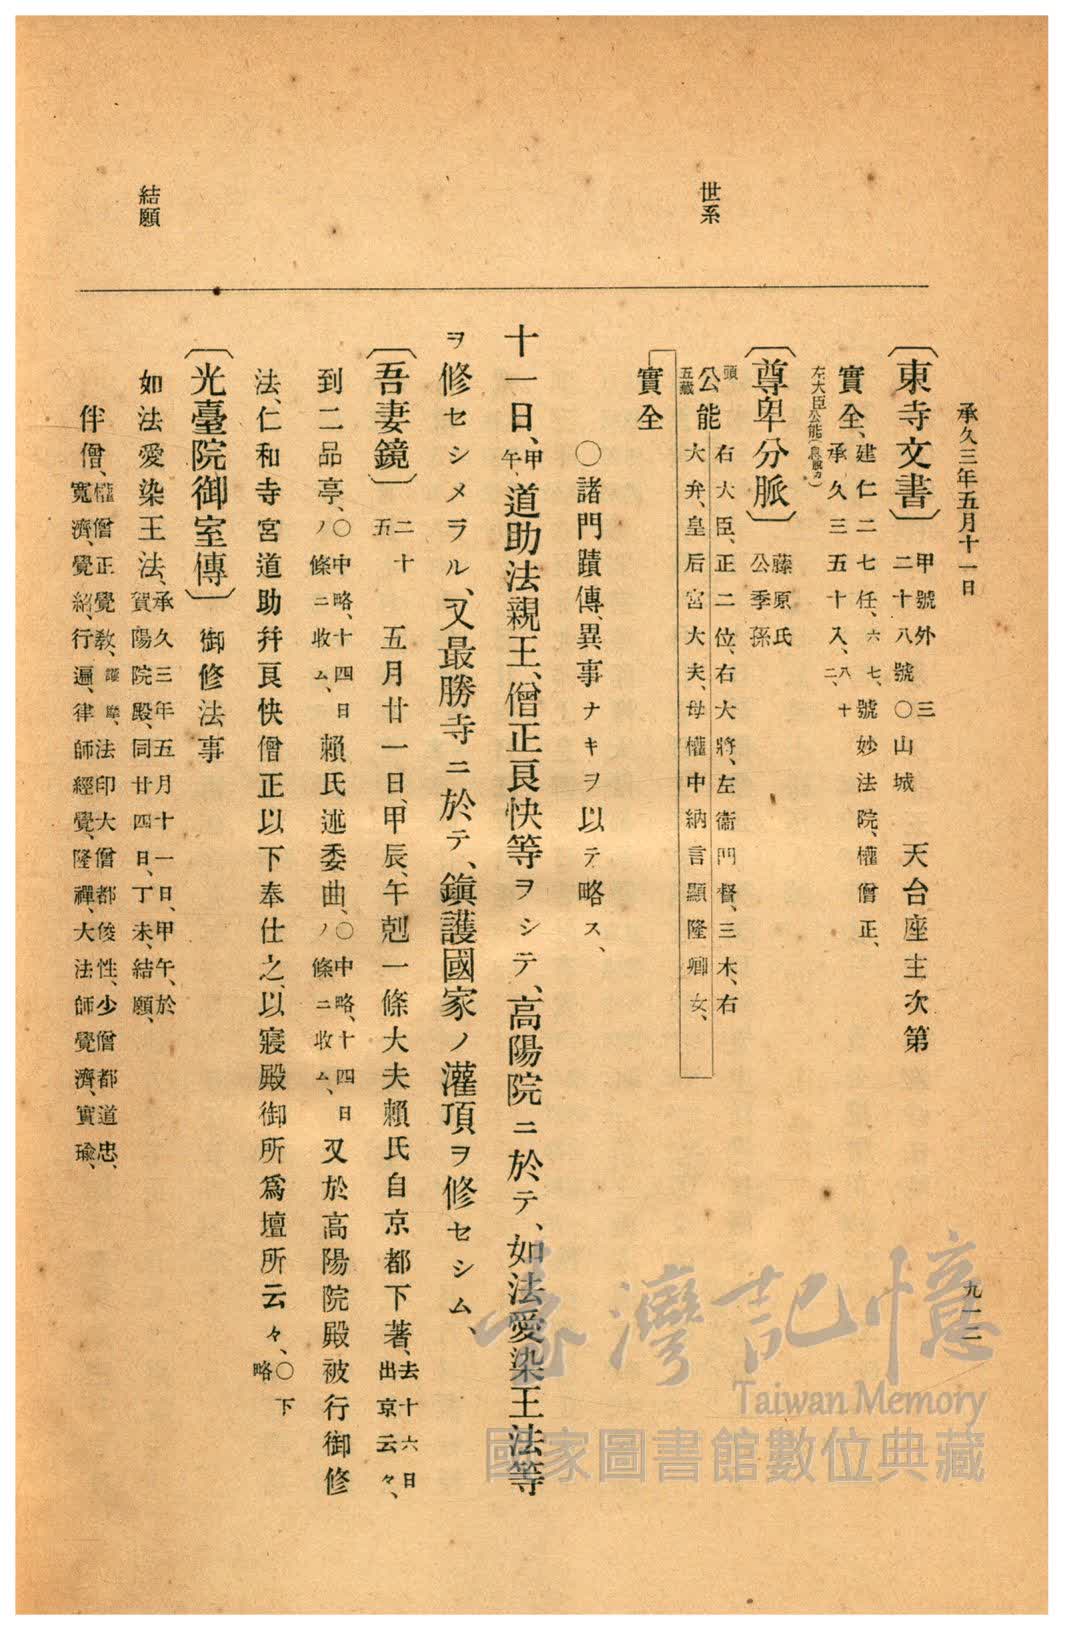 承久三年五月十一日
九一二
世系
結願
〔東寺文書〕甲號外 二十八號〇山城 三 天台座主次第
實全、建仁二七任、六七、號妙法院、權僧正、
承久三五十入、八十二、
左大臣公能(息脫カ)
〔尊卑分脈〕藤原氏
公季孫
頭
公能 右大臣、正二位、右大將、左衞門督、三木、右
五藏
大弁、皇后宮大夫、母權中納言顯隆卿女、
實全
〇諸門蹟傳、異事ナキヲ以テ略ス、
十一日、甲午、道助法親王、僧正良快等ヲシテ、高陽院ニ於テ、如法愛染王法等
ヲ修セシメラル、又最勝寺ニ於テ、鎭護國家ノ灌頂ヲ修セシム、
〔吾妻鏡〕二十五 五月廿一日、甲辰、午剋一條大夫賴氏自京都下著、去十六日出京云々、
到二品亭、〇中略、十四日ノ條ニ收ム、賴氏述委曲、〇中略、十四日ノ條ニ收ム、又於高陽院殿被行御修
法、仁和寺宮道助幷良快僧正以下奉仕之、以寢殿御所爲壇所云々、〇下略
〔光臺院御室傳〕御修法事
如法愛染王法、承久三年五月十一日、甲午、於
賀陽院殿、同廿四日、丁未、結願、
伴僧、權僧正覺敎、護摩、法印大僧都俊性、少僧都道忠、
寬濟、覺紹、行遍、律師經覺、隆禪、大法師覺濟、實瑜、
臺灣記憶
Taiwan Memory
國家圖書館數位典藏